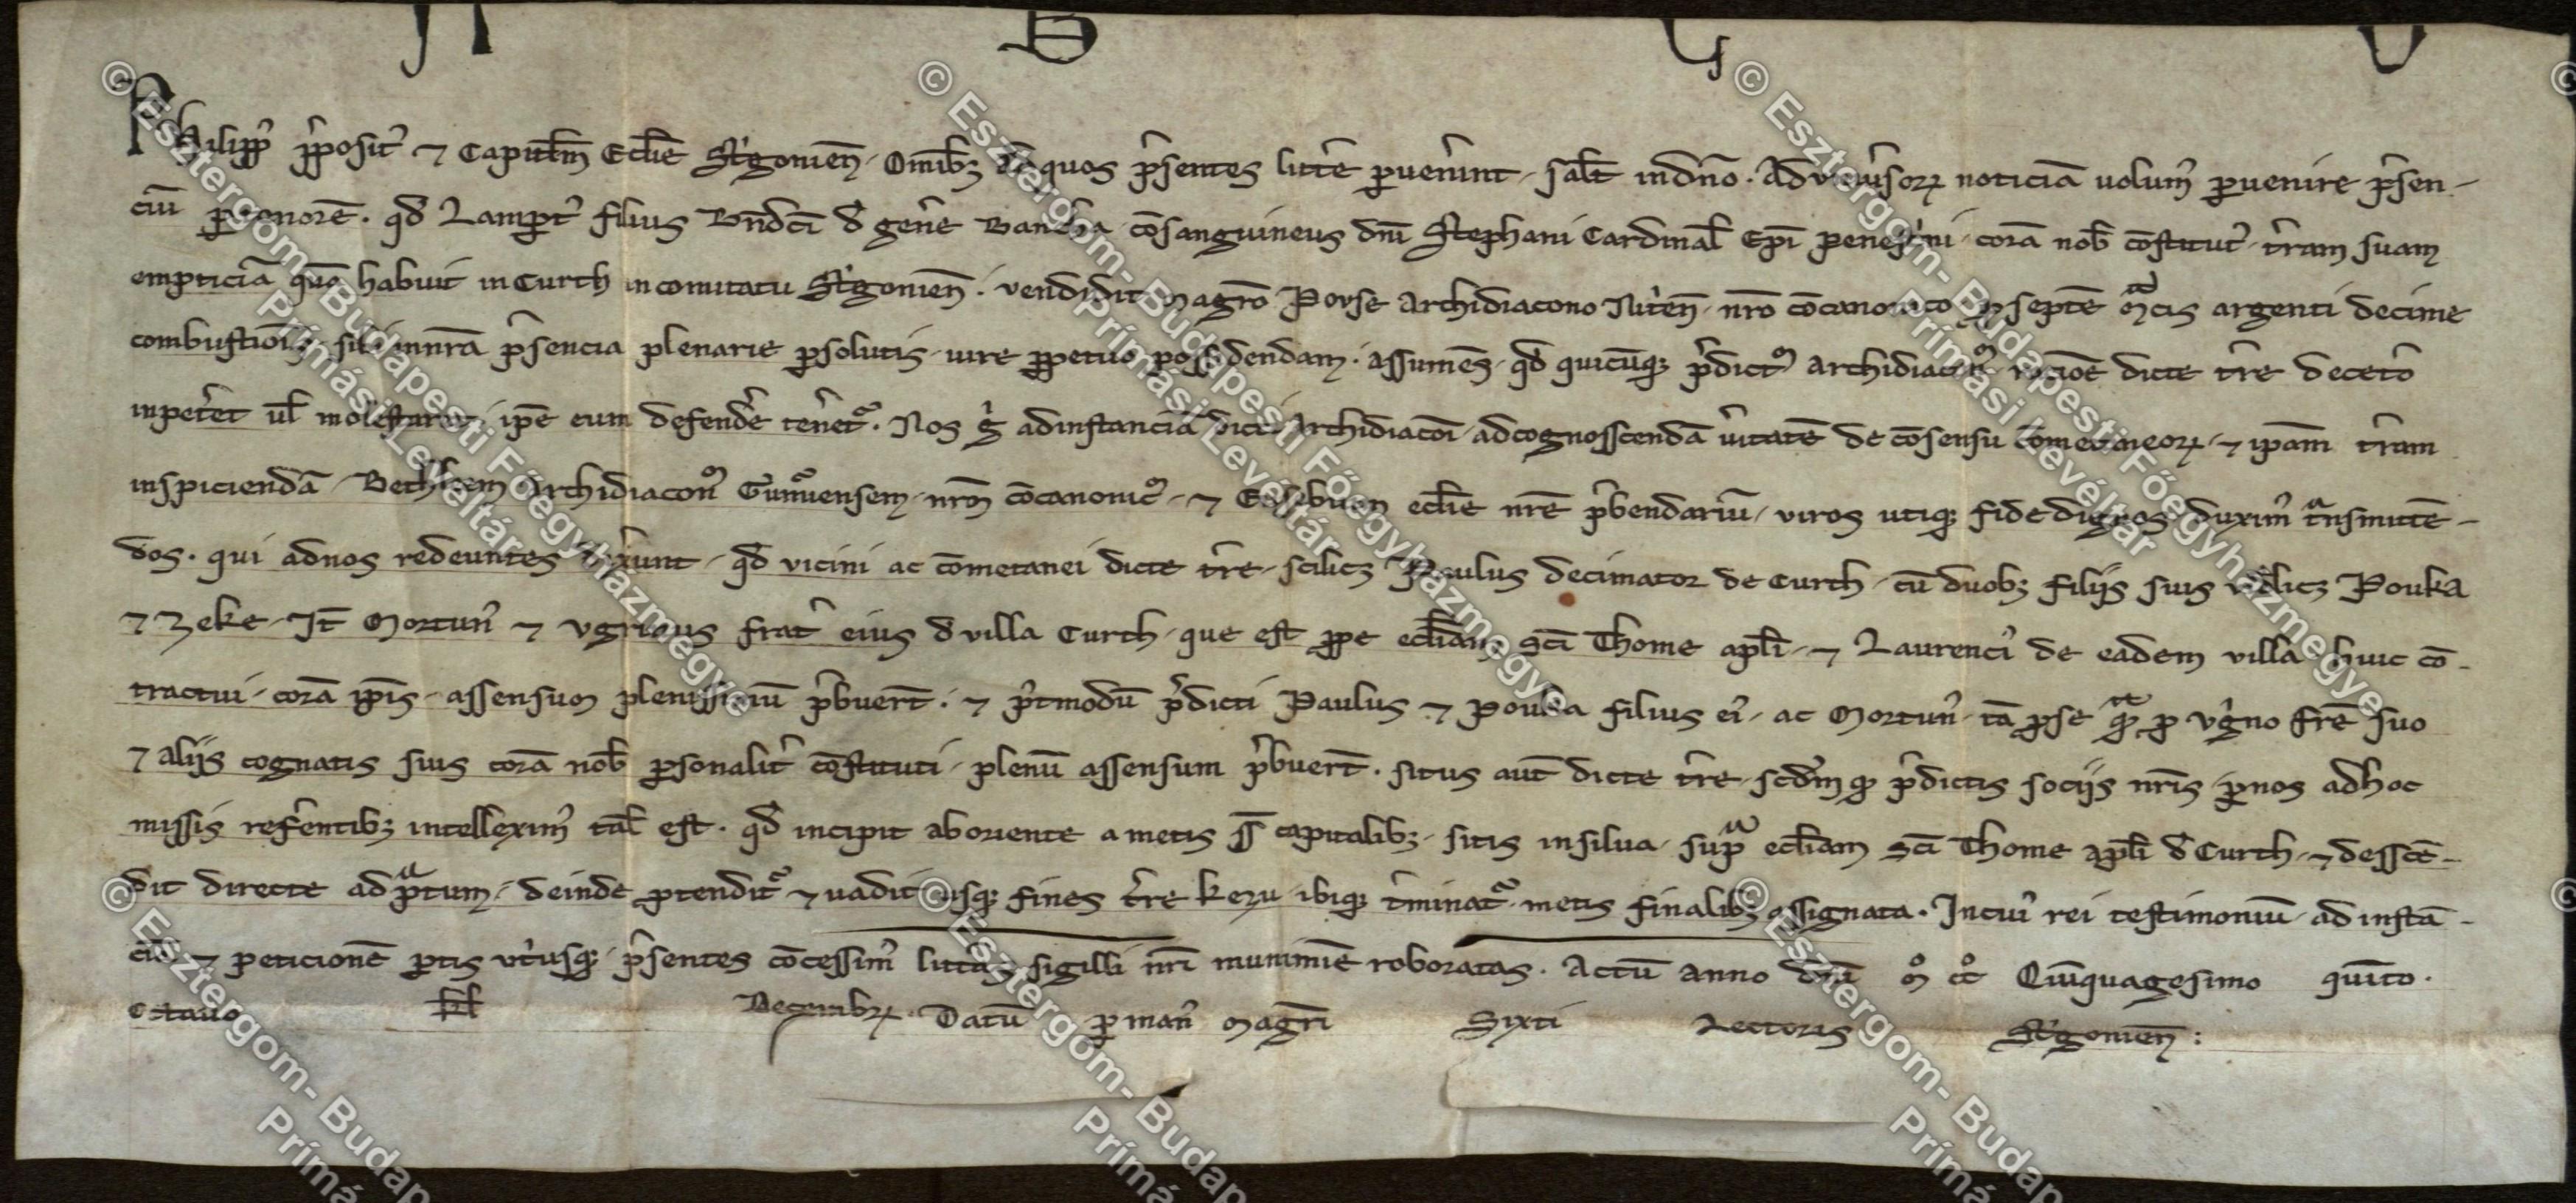 A B C D
Philipp̉ p̉posit᾿ ⁊ Capitl̄m Eccl̄ie Strigonien̄. Omnib; ad quos p̉sentes litt̉e ꝑuen̉int, salt̄ in dn̄o. Ad vniủsorꝝ noticiā uolum᾿ ꝑuenire p̉sen-
ciū ꝑ tenorē. qd̄ Lampt᾿ filius Bn̄dc̄i d̄ gen̉e Bancha, cōsanguineus dn̄i Stephani Cardinal̄ Ep̄i penest̉ni, corā nob̄ cōstitut᾿, t̉ram suam
empticiā quā habuit in Curth in comitatu St̉gonien̄. vendidit magr̄o Pouse Archidiacono Nit̉en̄, nr̄o cōcanonico ꝓ septē mͣcis argenti decime
combustiōis, sibi in nr̄a p̉sencia plenarie ꝑsolutis, iure ꝑpetuo possidendam. assumēs, qd̄ quicūq; p̉dict᾿ Archidiacon᾿ racōe dicte t̉re decet̉o
inpet̉et ul̄ molestaret, ip̄e eum defend̉e ten̉et᾿. Nos g̉ ad instanciā dicti Archidiacōi, ad cognosscendā ủitatē de cōsensu cōmetaneorꝝ, ⁊ ip̄am t̉ram
inspiciendā, Bethleem Archidiacon᾿ Gumuensem, nrm̄ cōcanonic᾿, ⁊ Eusebium eccl̄ie nr̄e p̉bendariū, viros utiq; fide dignos duxim᾿ tͣnsmittē-
dos. qui ad nos redeuntes dixerunt, qd̄ vicini ac cōmetanei dicte t̉re, scilic; Paulus decimator de Curth, cū duob; filijs suis vidlic; Pouka
⁊ Zeke, It̄ Mortun᾿ ⁊ vgrinus frat̉ eius d̄ villa Curth, que est ꝓpe eccl̄iam sc̄i Thome apl̄i, ⁊ Laurenci᾿ de eadem villa huic cō-
tractui, corā ip̄is, assensum plenissimū p̉buer̄t. ⁊ p᾿tmodū p̉dicti Paulus ⁊ Pouka filius ei᾿, ac Mortun᾿, tā ꝑ se qͣ ꝓ vg̉no fr̄e suo
⁊ alijs cognatis suis corā nob̄ ꝑsonalit̉ cōstituti, plenū assensum p̉buer̄t. situs aut̄ dicte t̉re, scd̄m qd p̉dictis socijs nr̄is, ꝑ nos ad hoc
missis refer̉entib; intellexim᾿ tal̄ est. qd̄ incipit ab oriente a metis capitalib;, sitis in silua, supͣ eccl̄iam sc̄i Thome apl̄i d̄ Curth, ⁊ desscē-
dit directe ad pͣtum, deinde ꝓtendit᾿ ⁊ uadit usq; fines t̉re kezu, ibiq; t̉minat᾿, metis finalib; assignata. In cui᾿ rei testimoniū, ad instā-
ciā ⁊ peticionē ꝑtis vt̉usq; p̉sentes cōcessim᾿ litt̉as sigilli nr̄i munimīe roboratas. Actū anno dn̄i mͦ ccͦ Quīquagesimo quīto.
octauo kl̄ Decembrꝝ. Datū ꝑ man᾿ magr̄i Sixti Lectoris St̉gonien̄:
© Esztergom-Budapesti Főegyházmegye
Prímási Levéltár